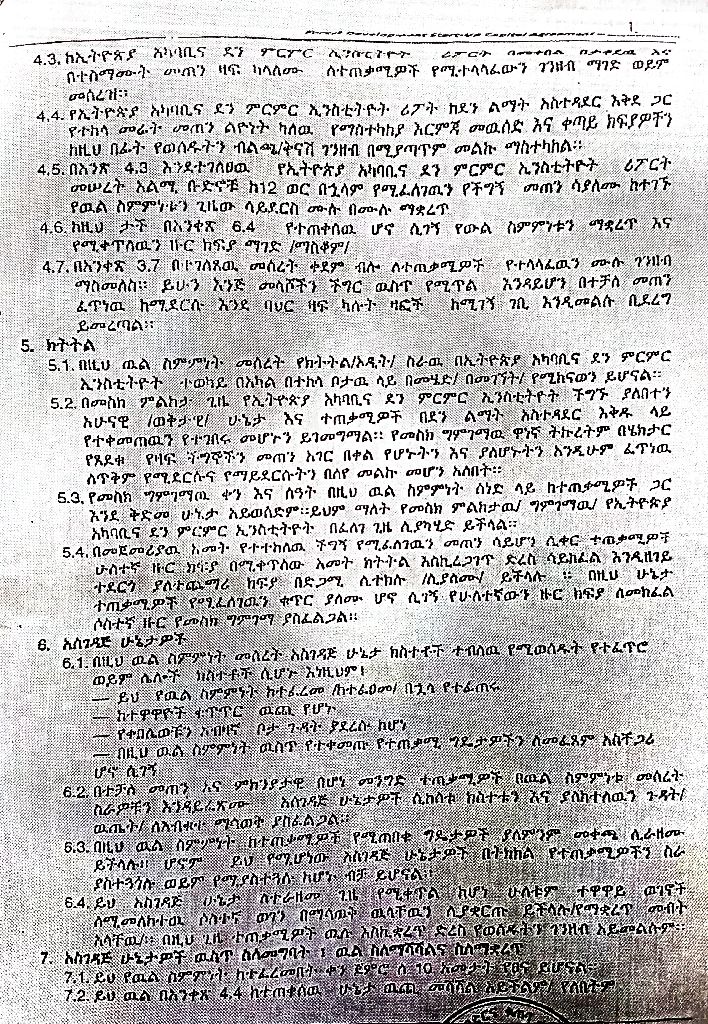 Forest Development Start-up Capital Agreement
1
4.3. ከኢትዮጵያ አካባቢና ደን ምርምር ኢንስቲትዮት ሪፖርት በመቀበል በታቀደዉ እና
በተስማሙት መጠን ዛፍ ካላለሙ ለተጠቃሚዎች የሚተላለፈውን ገንዘብ ማገድ ወይም
መሰረዝ።
4.4. የኢትዮጵያ አካባቢና ደን ምርምር ኢንስቲትዮት ሪፖት ከደን ልማት አስተዳደር እቅድ ጋር
የተከላ መሬት መጠን ልዮነት ካለዉ የማስተካከያ እርምጃ መዉሰድ እና ቀጣይ ክፍያዎችን
ከዚህ በፊት የወሰዱትን ብልጫ/ቅናሽ ገንዘብ በሚያጣጥም መልኩ ማስተካከል።
4.5. በአንጽ 4.3 እንደተገለፀዉ የኢትዮጵያ አካባቢና ደን ምርምር ኢንስቲትዮት ሪፖርት
መሠረት አልሚ ቡድኖቹ ከ12 ወር በኋላም የሚፈለገዉን የችግኝ መጠን ሳያለሙ ከተገኙ
የዉል ስምምነቱን ጊዜው ሳይደርስ ሙሉ በሙሉ ማቋረጥ
4.6. ከዚህ ታች በአንቀጽ 6.4 የተጠቀሰዉ ሆኖ ሲገኝ የውል ስምምነቱን ማቋረጥ እና
የሚቀጥለዉን ዙር ክፍያ ማገድ /ማስቆም/
4.7. በአንቀጽ 3.7 በተገለጸዉ መሰረት ቀደም ብሎ ለተጠቃሚዎች የተላላፈዉን ሙሉ ገንዘብ
ማስመለስ። ይሁን እንጅ መላሾችን ችግር ዉስጥ የሚጥል እንዳይሆን በተቻለ መጠን
ፈጥነዉ ከማደርሱ እንደ ባህር ዛፍ ካሉት ዛፎች ከሚገኝ ገቢ እንዲመልሱ ቢደረግ
ይመረጣል።
5. ክትትል
5.1. በዚህ ዉል ስምምነት መሰረት የክትትል/ኦዲት/ ስራዉ በኢትዮጵያ አካባቢና ደን ምርምር
ኢንስቲትዮት ተወካይ በአካል በተከላ ቦታዉ ላይ በመሄድ/ በመገኘት/ የሚከናወን ይሆናል።
5.2. በመስክ ምልከታ ጊዜ የኢትዮጵያ አካባቢና ደን ምርምር ኢንስቲትዮት ችግኙ ያለበተን
አሁናዊ /ወቅታዊ/ ሁኔታ እና ተጠቃሚዎች በደን ልማት አስተዳደር እቅዱ ላይ
የተቀመጠዉን የተገበሩ መሆኑን ይገመግማል። የመስክ ግምገማዉ ዋነኛ ትኩረትም በሄክታር
የጸደቁ የዛፍ ችግኞችን መጠን አገር በቀል የሆኑትን እና ያልሆኑትን እንዲሁም ፈጥነዉ
ለጥቅም የሚደርሱና የማይደርሱትን በለየ መልኩ መሆን አለበት።
5.3. የመስክ ግምገማዉ ቀን እና ሰዓት በዚህ ዉል ስምምነት ሰነድ ላይ ከተጠቃሚዎች ጋር
እንደ ቅድመ ሁኔታ አይወሰድም።ይህም ማለት የመስክ ምልከታዉ/ ግምገማዉ/ የኢትዮጵያ
አካባቢና ደን ምርምር ኢንስቲትዮት በፈለገ ጊዜ ሊያካሂድ ይችላል።
5.4. በመጀመሪያዉ አመት የተተከለዉ ችግኝ የሚፈለገዉን መጠን ሳይሆን ሲቀር ተጠቃሚዎች
ሁለተኛ ዙር ክፍያ በሚቀጥለው አመት ክትትል እስኪረጋገጥ ድረስ ሳይከፈል እንዲዘገይ
ተደርጎ ያለተጨማሪ ክፍያ በድጋሚ ሊተክሉ /ሊያለሙ/ ይችላሉ ። በዚህ ሁኔታ
ተጠቃሚዎች የሚፈለገዉን ቁጥር ያለሙ ሆኖ ሲገኝ የሁለተኛውን ዙር ክፍያ ለመክፈል
ሶስተኛ ዙር የመስክ ግምገማ ያስፈልጋል።
6. አስገዳጅ ሁኔታዎች
6.1. በዚህ ዉል ስምምነት መሰረት አስገዳጅ ሁኔታ ክስተቶች ተብለዉ የሚወሰዱት የተፈጥሮ
ወይም ሌሎች ክስተቶች ሲሆኑ እነዚህም፤
— ይህ የዉል ስምምነት ከተፈረመ /ከተፈፀመ/ በኋላ የተፈጠሩ
— ከተዋዋዮች ቁጥጥር ዉጪ የሆኑ
— የቀበሌውቹን አብዛኛ ቦታ ጉዳት ያደረሱ ከሆነ
— በዚህ ዉል ስምምነት ዉስጥ የተቀመጡ የተጠቃሚ ግዴታዎችን ለመፈጸም አስቸጋሪ
ሆኖ ሲገኝ
6.2. በተቻለ መጠን እና ምክንያታዊ በሆነ መንግድ ተጠቃሚዎች በዉል ስምምነቱ መሰረት
ስራዎቹን እንዳይፈጽሙ አስገዳጅ ሁኔታዎች ሲከሰቱ ክስተቱን እና ያስከተለዉን ጉዳት/
ዉጤት/ ማሳወቅ ያስፈልጋል።
6.3. በዚህ ዉል ስምምነት ከተጠቃሚዎች የሚጠበቁ ግዴታዎች ያለምንም መቀጫ ሊራዘሙ
ይችላሉ። ሆኖም ይህ የሚሆነው አስገዳጅ ሁኔታዎች በትክክል የተጠቃሚዎችን ስራ
ያስተጓጎሉ ወይም የሚያስተጓጉሉ ከሆነ ብቻ ይሆናል።
6.4. ይህ አስገዳጅ ሁኔታ ለተራዘመ ጊዜ የሚቀጥል ከሆነ ሁለቱም ተዋዋይ ወገኖች
ለሚመለከተዉ ሶስተኛ ወገን በማሳወቅ ዉላቸዉን ሊያቋርጡ ይችላሉ/የማቋረጥ መብት
አላቸዉ/። በዚህ ጊዜ ተጠቃሚዎች ዉሉ እስኪቋረጥ ድረስ የወሰዱትን ገንዘብ አይመልሱም።
7. አስገዳጅ ሁኔታዎች ዉስጥ ስለመግባት ፣ ዉል ስለማሻሻልና ስለማቋረጥ
7.1. ይህ የዉል ስምምነት ከተፈረመበት ቀን ጀምሮ ለ 10 አመታት የፀና ይሆናል።
7.2. ይህ ዉል በአንቀጽ 4.4 ከተጠቀሰዉ ሁኔታ ዉጪ መሻሻል አይችልም/ የለበትም